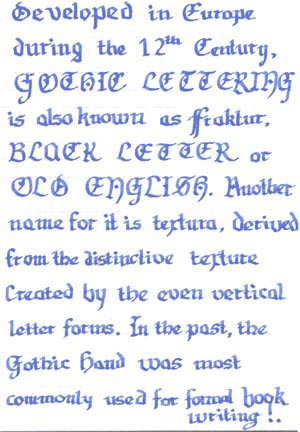 Developed in Europe
during the 12th Century,
GOTHIC LETTERING
is also known as ffraktur,
BLACK LETTER or
OLD ENGLISH. Another
name for it is textura, derived
from the distinctive texture
Created by the even vertical
letter forms. In the past, the
Gothic hand was most
commonly used for formal book
writing!.